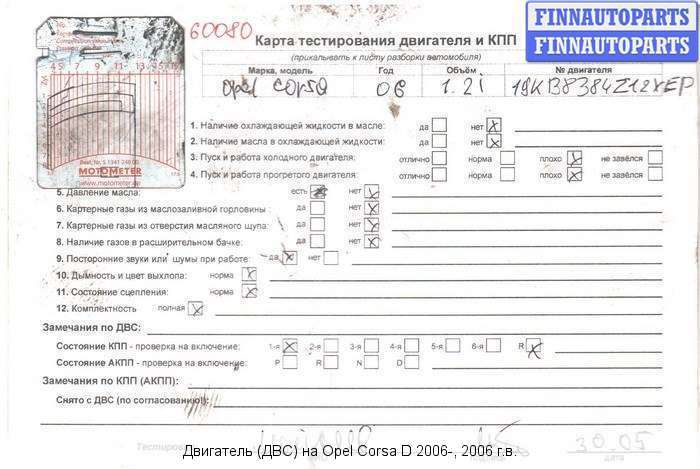 FINNAUTOPARTS
FINNAUTOPARTS
60080
Карта тестирования двигателя и КПП
(прикалывать к листу разборки автомобиля)
Марка, модель Год Объём № двигателя
opel corsa 06 1.2i 19KB8384Z12XEP
1. Наличие охлаждающей жидкости в масле: да нет X
2. Наличие масла в охлаждающей жидкости: да нет X
3. Пуск и работа холодного двигателя: отлично норма плохо X не завёлся
4. Пуск и работа прогретого двигателя: отлично норма плохо X не завёлся
MOTOMETER
www.motometer.de
5. Давление масла: есть нет X
6. Картерные газы из маслозаливной горловины: да нет X
7. Картерные газы из отверстия масляного щупа: да нет X
8. Наличие газов в расширительном бачке: да нет X
9. Посторонние звуки или шумы при работе: да X нет
10. Дымность и цвет выхлопа: норма X
11. Состояние сцепления: норма X
12. Комплектность полная X
Замечания по ДВС:
Состояние КПП - проверка на включение: 1-я X 2-я 3-я 4-я 5-я 6-я R X
Состояние АКПП - проверка на включение: P R N D
Замечания по КПП (АКПП):
Снято с ДВС (по согласованию!):
30.05
дата
Двигатель (ДВС) на Opel Corsa D 2006-, 2006 г.в.